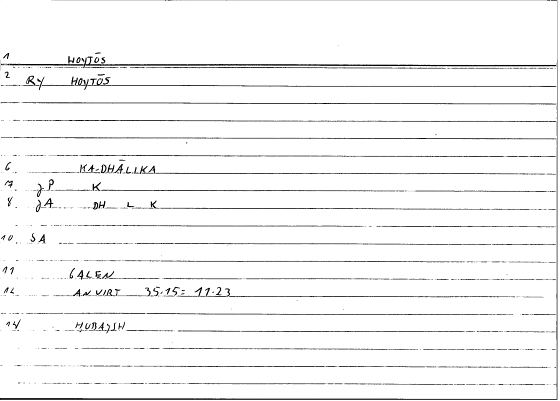 1 HOYTŌS
2 RY HOYTŌS
6 KA-DHĀLIKA
7 JP K
8 JA DH L K
10 SA
11 GALEN
12 AN VIRT 35.15 = 11.23
14 ḤUBAYSH